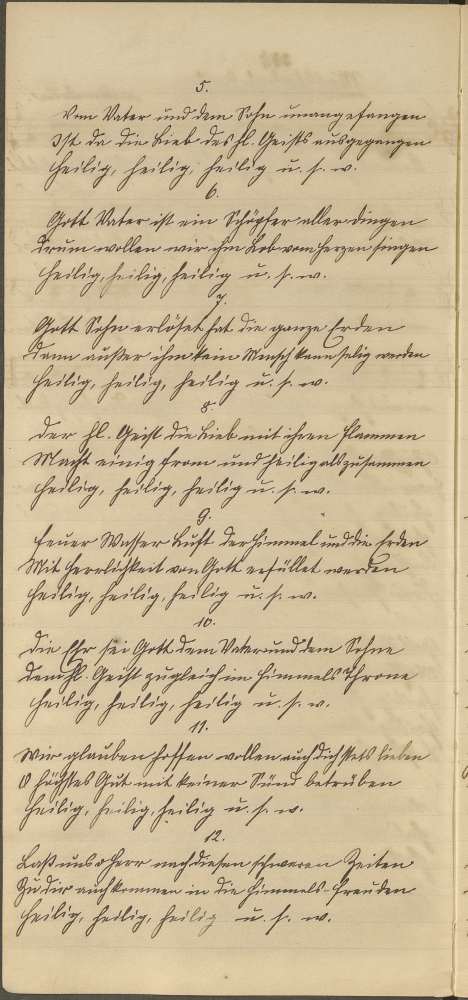 5.
Vom Vater und dem Sohn unangefangen
Ist da die Lieb des hl. Geists ausgegangen
Heilig, heilig, heilig u. s. w.
6.
Gott Vater ist ein Schöpfer aller dingen
Drum wollen wir ihm Lob vom Herzen singen
Heilig, heilig, heilig u. s. w.
7.
Gott Sohn erlöset hat die ganze Erden
Denn außer ihm kein Mensch kann selig werden
Heilig, heilig, heilig u. s. w.
8.
Der hl. Geist die Lieb mit ihren Flammen
Macht einig from und heilig als zusammen
Heilig, heilig, heilig u. s. w.
9.
Feuer Wasser Luft der Himmel und die Erden
Mit Herrlichkeit von Gott erfüllet werden
Heilig, heilig, heilig u. s. w.
10.
Die Ehr sei Gott dem Vater und dem Sohne
Dem hl. Geist zugleich im Himmels Throne
Heilig, heilig, heilig u. s. w.
11.
Wir glauben hoffen wollen auch dich stets lieben
O höchstes Gut mit keiner Sünd betrüben
Heilig, heilig, heilig u. s. w.
12.
Laß uns o Herr nach diesen schweren Zeiten
Zu dir auch kommen in die Himmels-Freuden
Heilig, heilig, heilig u. s. w.